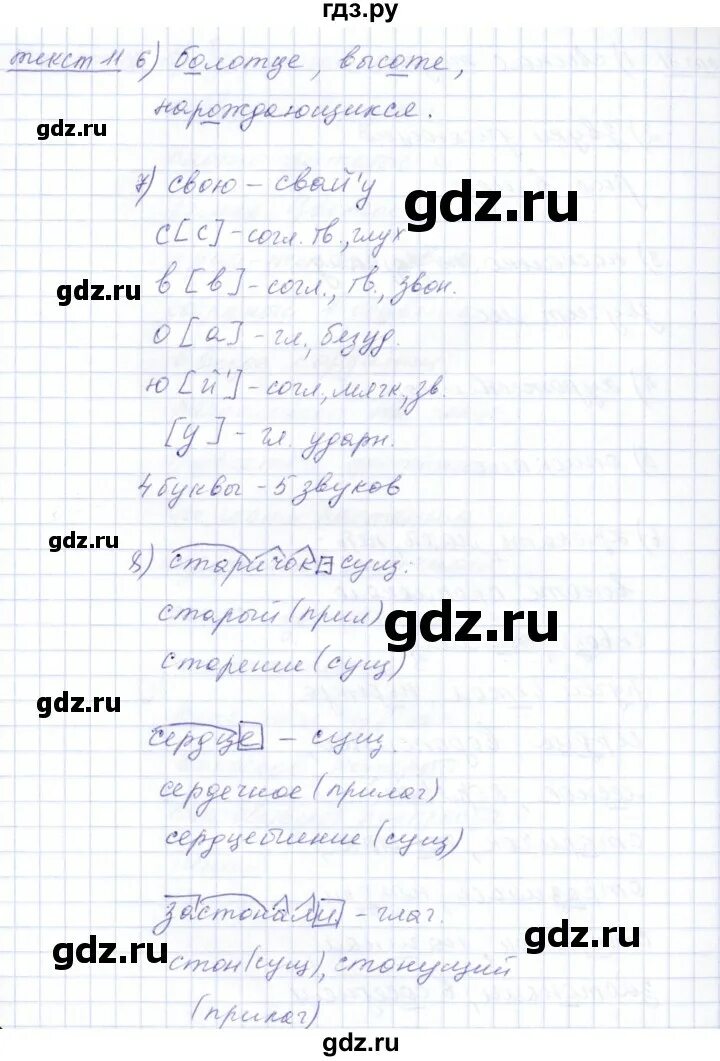 гдз.ру
текст 11 6) болотце, высоте,
нарождающихся.
gdz.ru
7) свою - свай'у
gdz.ru
с [с] - согл. тв., глух
gdz.ru
в [в] - согл., тв., звон.
о [а] - гл., безуд.
ю [й'] - согл., мягк., зв.
gdz.ru
[у] - гл. ударн.
4 буквы - 5 звуков
gdz.ru
8) старичок - сущ.
старый (прил)
gdz.ru
старение (сущ)
gdz.ru
сердце - сущ.
сердечное (прилаг)
сердцебиение (сущ)
застонали - глаг.
gdz.ru
gdz.ru
стон (сущ), стонущий
(прилаг)
gdz.ru